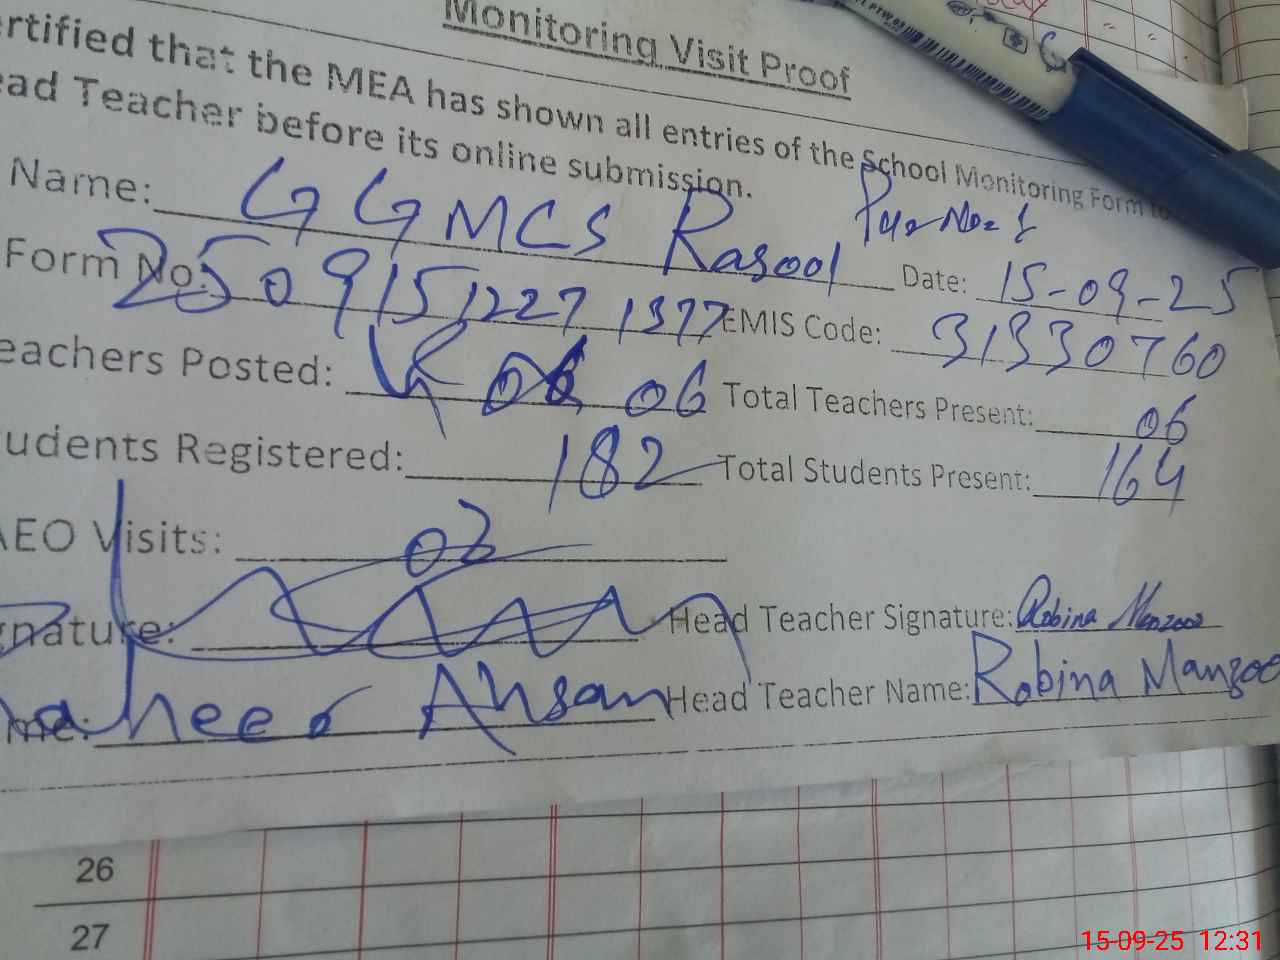 Monitoring Visit Proof
ertified that the MEA has shown all entries of the School Monitoring Form to
ead Teacher before its online submission.
Name: GGMCS Rasool Pur No= 1
Form No. 2509151227 1377 Date: 15-09-25
EMIS Code: 31330760
eachers Posted: 06 Total Teachers Present: 06
udents Registered: 182 Total Students Present: 164
AEO Visits: 03
gnature: Head Teacher Signature: Robina Manzoor
me: aheer Ahsan Head Teacher Name: Robina Manzoo
26
27
15-09-25 12:31